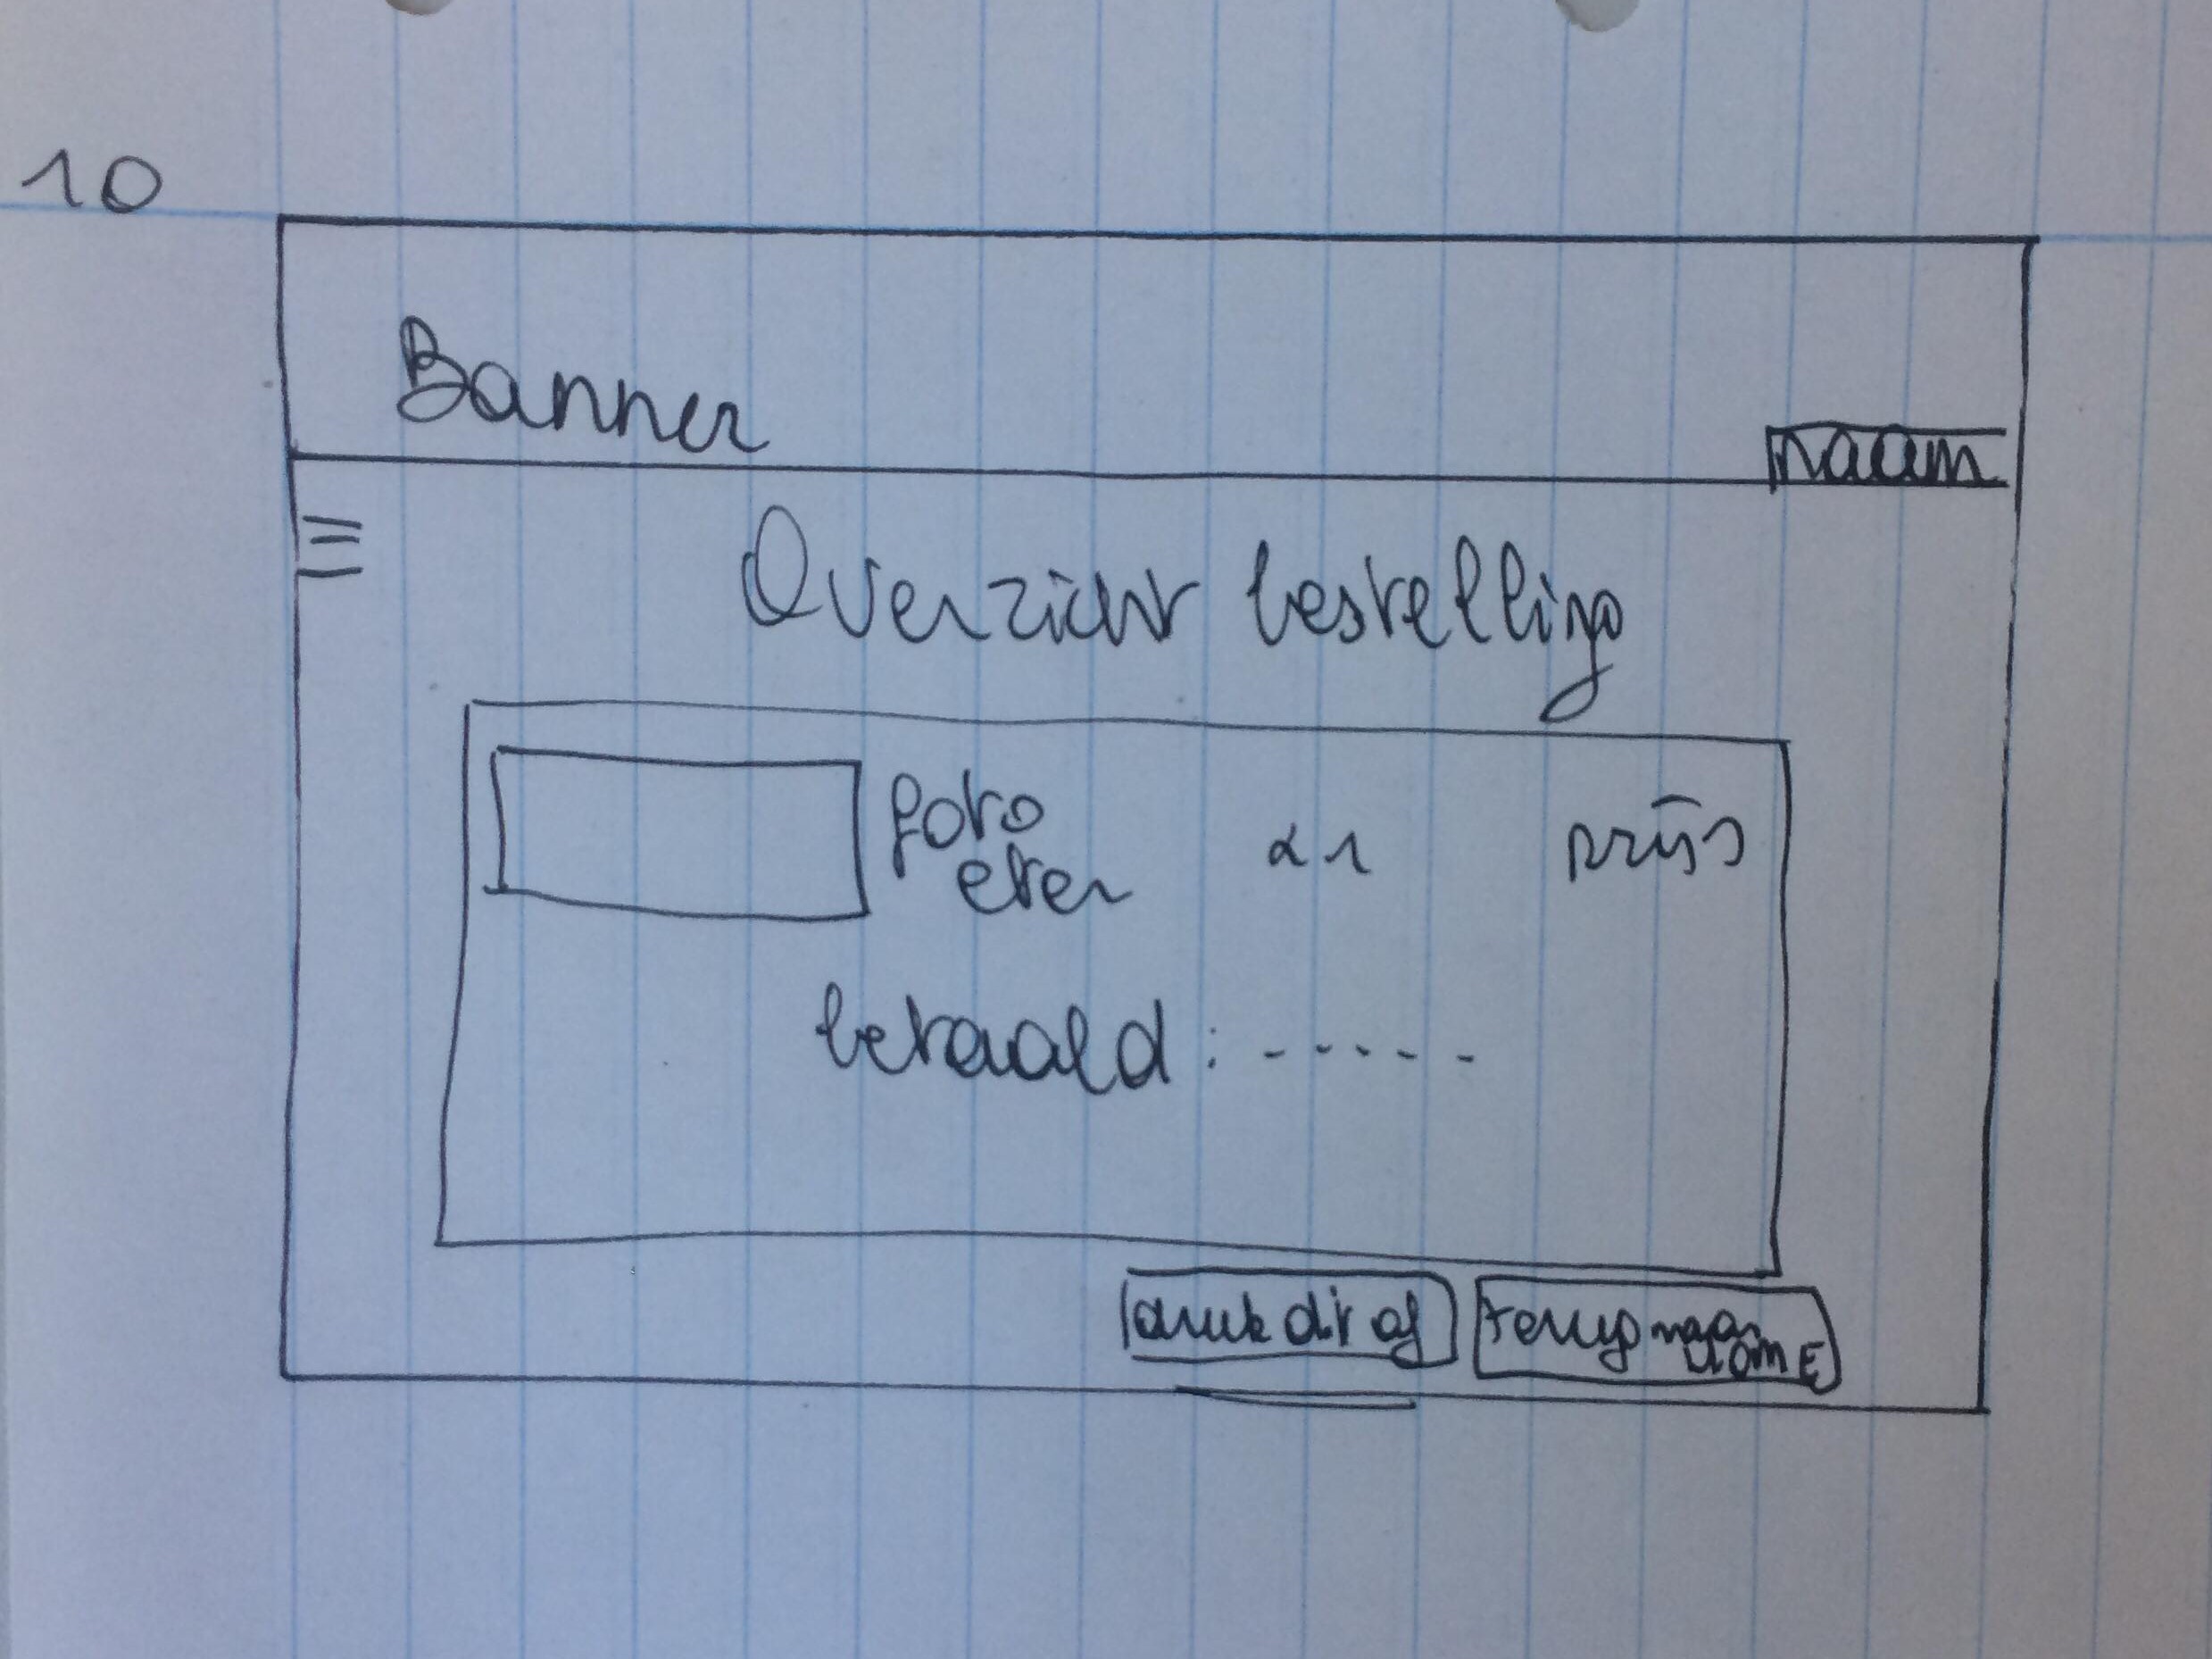 10
Banner
naam
Overzicht bestelling
foto x 1 prijs
eten
betaald : - - - - -
druk dit af terug naar
HOME